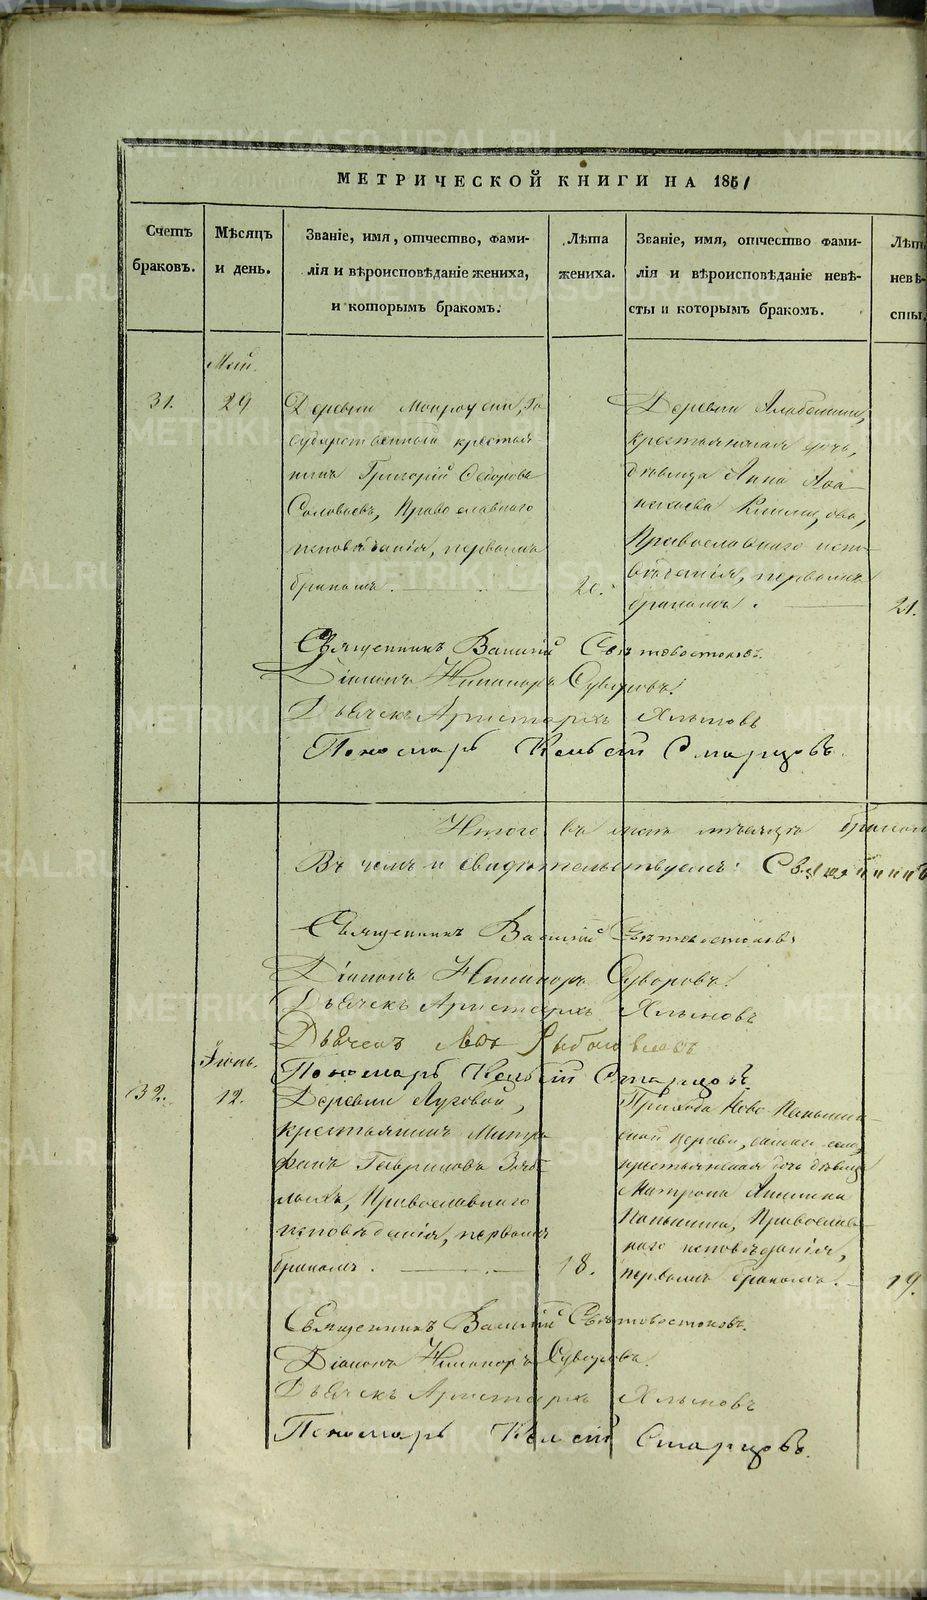 МЕТРИЧЕСКОЙ КНИГИ НА 1851
Счетъ браковъ.
Мѣсяцъ и день.
Званіе, имя, отчество, фами-
лія и вѣроисповѣданіе жениха,
и которымъ бракомъ.
Лѣта
жениха.
Званіе, имя, отчество фами-
лія и вѣроисповѣданіе невѣ-
сты и которымъ бракомъ.
Лѣт
невѣ-
сты,
Май.
31.
29
Деревни Го
сударственный крестья
нинъ Григорій Ѳедоровъ
Соловьевъ, Православнаго
исповѣданія, первымъ
бракомъ.
20.
Деревни
крестьянская дочь,
дѣвица Анна Аѳа
насьева
Православнаго испо
вѣданія, первымъ
бракомъ.
21.
Священникъ Василій Свѣтовостоковъ.
Діаконъ Никаноръ Суворовъ.
Дьячекъ Аристархъ Хлыновъ
Пономарь Келсій Старцовъ.
Итого въ маѣ мѣсяцѣ браков
Въ чемъ и свидѣтельствуемъ:
Священникъ Василій Свѣтовостоковъ.
Діаконъ Никаноръ Суворовъ.
Дьячекъ Аристархъ Хлыновъ
Дьячекъ Левъ
Пономарь Келсій Старцовъ.
Іюнь.
32.
12.
Деревни Луговой,
крестьянинъ Митро
фанъ Гавриловъ
Православнаго
исповѣданія, первымъ
бракомъ.
18.
Прихода Ново-Паньшин
ской церкви,
крестьянская дочь дѣвица
Матрона
Паньшина, Православ
наго исповѣданія,
первымъ бракомъ.
19.
Священникъ Василій Свѣтовостоковъ.
Діаконъ Никаноръ Суворовъ.
Дьячекъ Аристархъ Хлыновъ
Пономарь Келсій Старцовъ.
METRIKI.GASO-URAL.RU